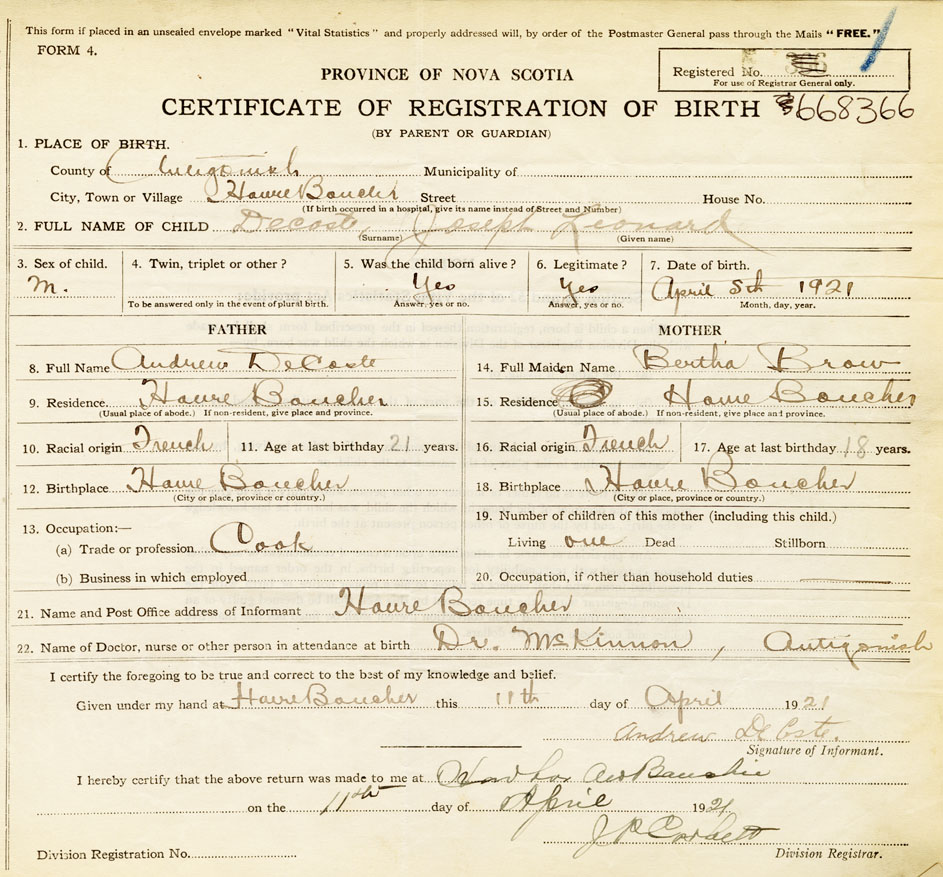 This form if placed in an unsealed envelope marked "Vital Statistics" and properly addressed will, by order of the Postmaster General pass through the Mails "FREE."
FORM 4.
PROVINCE OF NOVA SCOTIA
Registered No.
For use of Registrar General only.
CERTIFICATE OF REGISTRATION OF BIRTH 668366
(BY PARENT OR GUARDIAN)
1. PLACE OF BIRTH.
County of Antigonish Municipality of
City, Town or Village Havre Boucher Street House No.
(If birth occurred in a hospital, give its name instead of Street and Number)
2. FULL NAME OF CHILD Decoste, Joseph Leonard
(Surname) (Given name)
3. Sex of child. 4. Twin, triplet or other? 5. Was the child born alive? 6. Legitimate? 7. Date of birth.
M. Yes Yes April 5th 1921
To be answered only in the event of plural birth. Answer, yes or no. Answer, yes or no. Month, day, year.
FATHER MOTHER
8. Full Name Andrew DeCoste 14. Full Maiden Name Bertha Brow
9. Residence Havre Boucher 15. Residence Havre Boucher
(Usual place of abode.) If non-resident, give place and province. (Usual place of abode.) If non-resident, give place and province.
10. Racial origin French 11. Age at last birthday 21 years. 16. Racial origin French 17. Age at last birthday 18 years.
12. Birthplace Havre Boucher 18. Birthplace Havre Boucher
(City or place, province or country.) (City or place, province or country.)
13. Occupation:— 19. Number of children of this mother (including this child.)
(a) Trade or profession Cook Living one Dead Stillborn
(b) Business in which employed 20. Occupation, if other than household duties
21. Name and Post Office address of Informant Havre Boucher
22. Name of Doctor, nurse or other person in attendance at birth Dr. McKinnon, Antigonish
I certify the foregoing to be true and correct to the best of my knowledge and belief.
Given under my hand at Havre Boucher this 11th day of April 1921
Andrew DeCoste.
Signature of Informant.
I hereby certify that the above return was made to me at
on the 11th day of April 1921
J P Corbett
Division Registration No. Division Registrar.